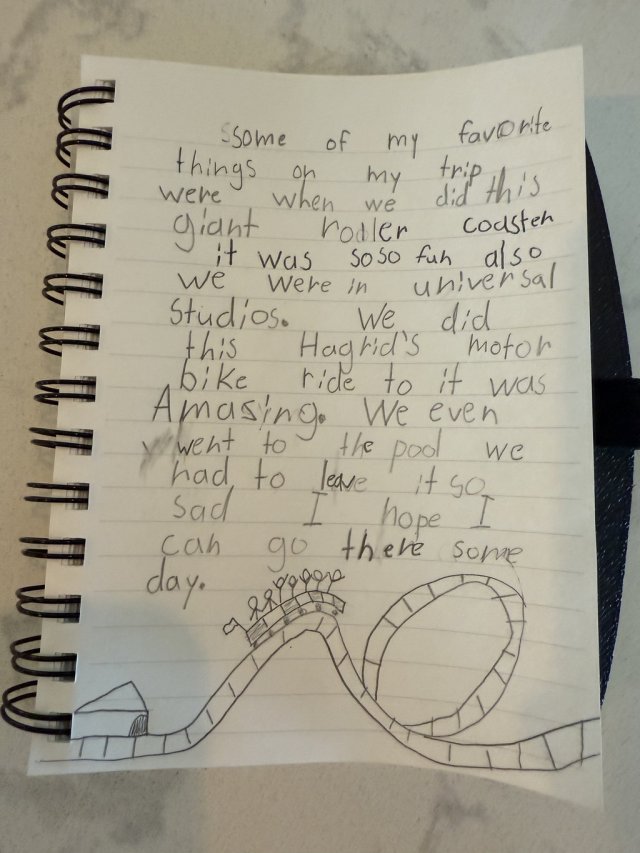 some of my favorite
things on my trip
were when we did this
giant roller coaster
it was soso fun also
we were in universal
Studios. We did
this Hagrid's motor
bike ride to it was
Amasing. We even
went to the pool we
had to leave it so
sad I hope I
can go there some
day.